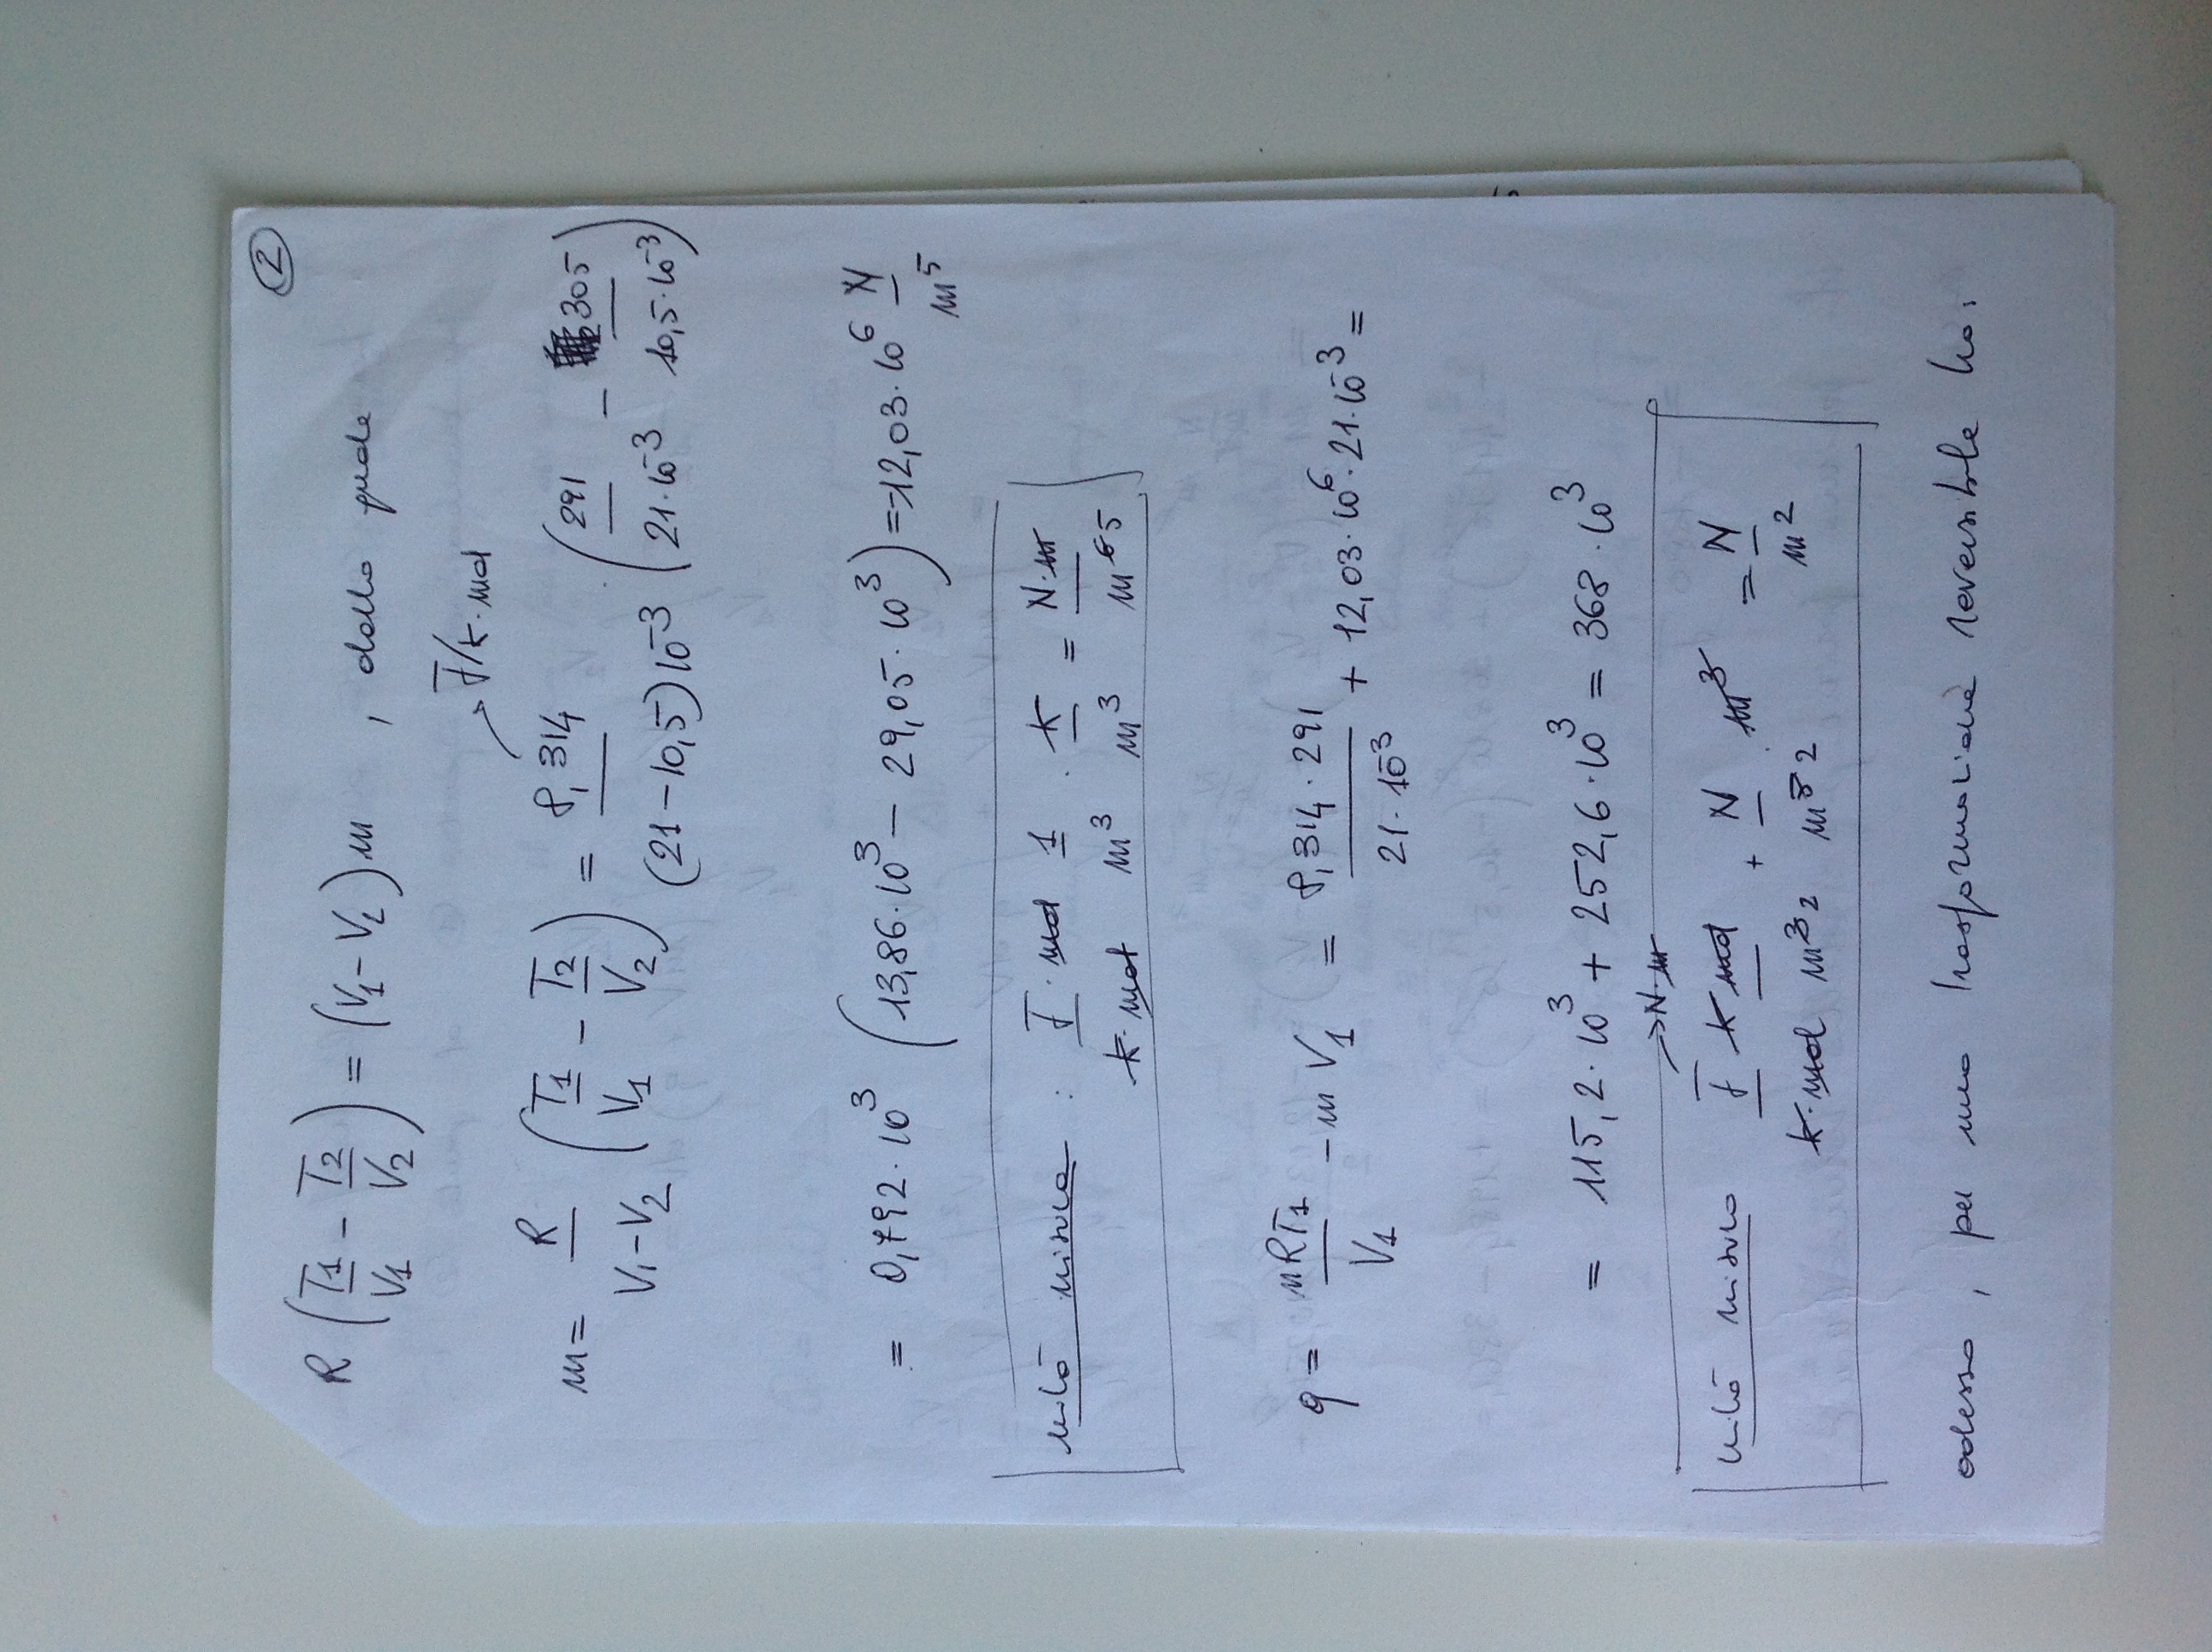 2
R (T1/V1 - T2/V2) = (V1 - V2) m , dalla quale
J/K·mol
m = R/(V1-V2) (T1/V1 - T2/V2) = 8,314/((21-10,5)10^-3) · (291/(21·10^-3) - 305/(10,5·10^-3))
= 0,792·10^3 (13,86·10^3 - 29,05·10^3) = -12,03·10^6 N/m^5
unità misura : J·mol/(K·mol) 1/m^3 · K/m^3 = N·m/m^65
q = nRT1/V1 - m V1 = 8,314·291/(21·10^-3) + 12,03·10^6·21·10^-3 =
= 115,2·10^3 + 252,6·10^3 = 368·10^3
→N·m
unità misura J/(K·mol) K mol/m^32 + N/m^52 · m^3 = N/m^2
adesso, per una trasformazione reversibile ho: